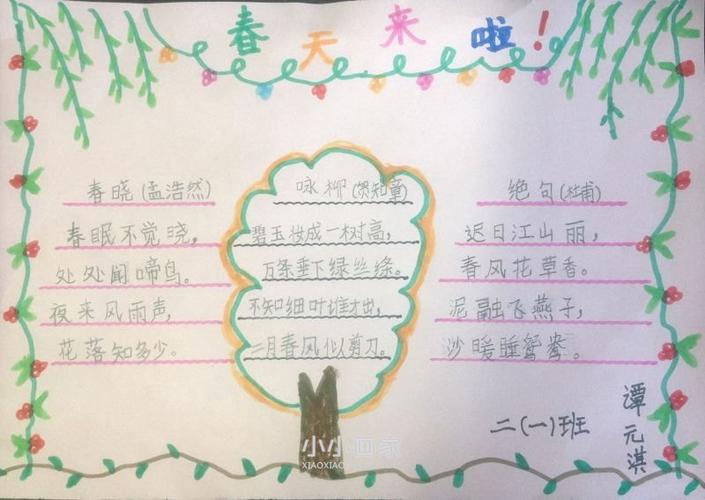 春天来啦！
春晓(孟浩然)
春眠不觉晓，
处处闻啼鸟。
夜来风雨声，
花落知多少。
咏柳(贺知章)
碧玉妆成一树高，
万条垂下绿丝绦。
不知细叶谁才出，
二月春风似剪刀。
绝句(杜甫)
迟日江山丽，
春风花草香。
泥融飞燕子，
沙暖睡鸳鸯。
二(一)班
谭元淇
小小画家
XIAOXIAO